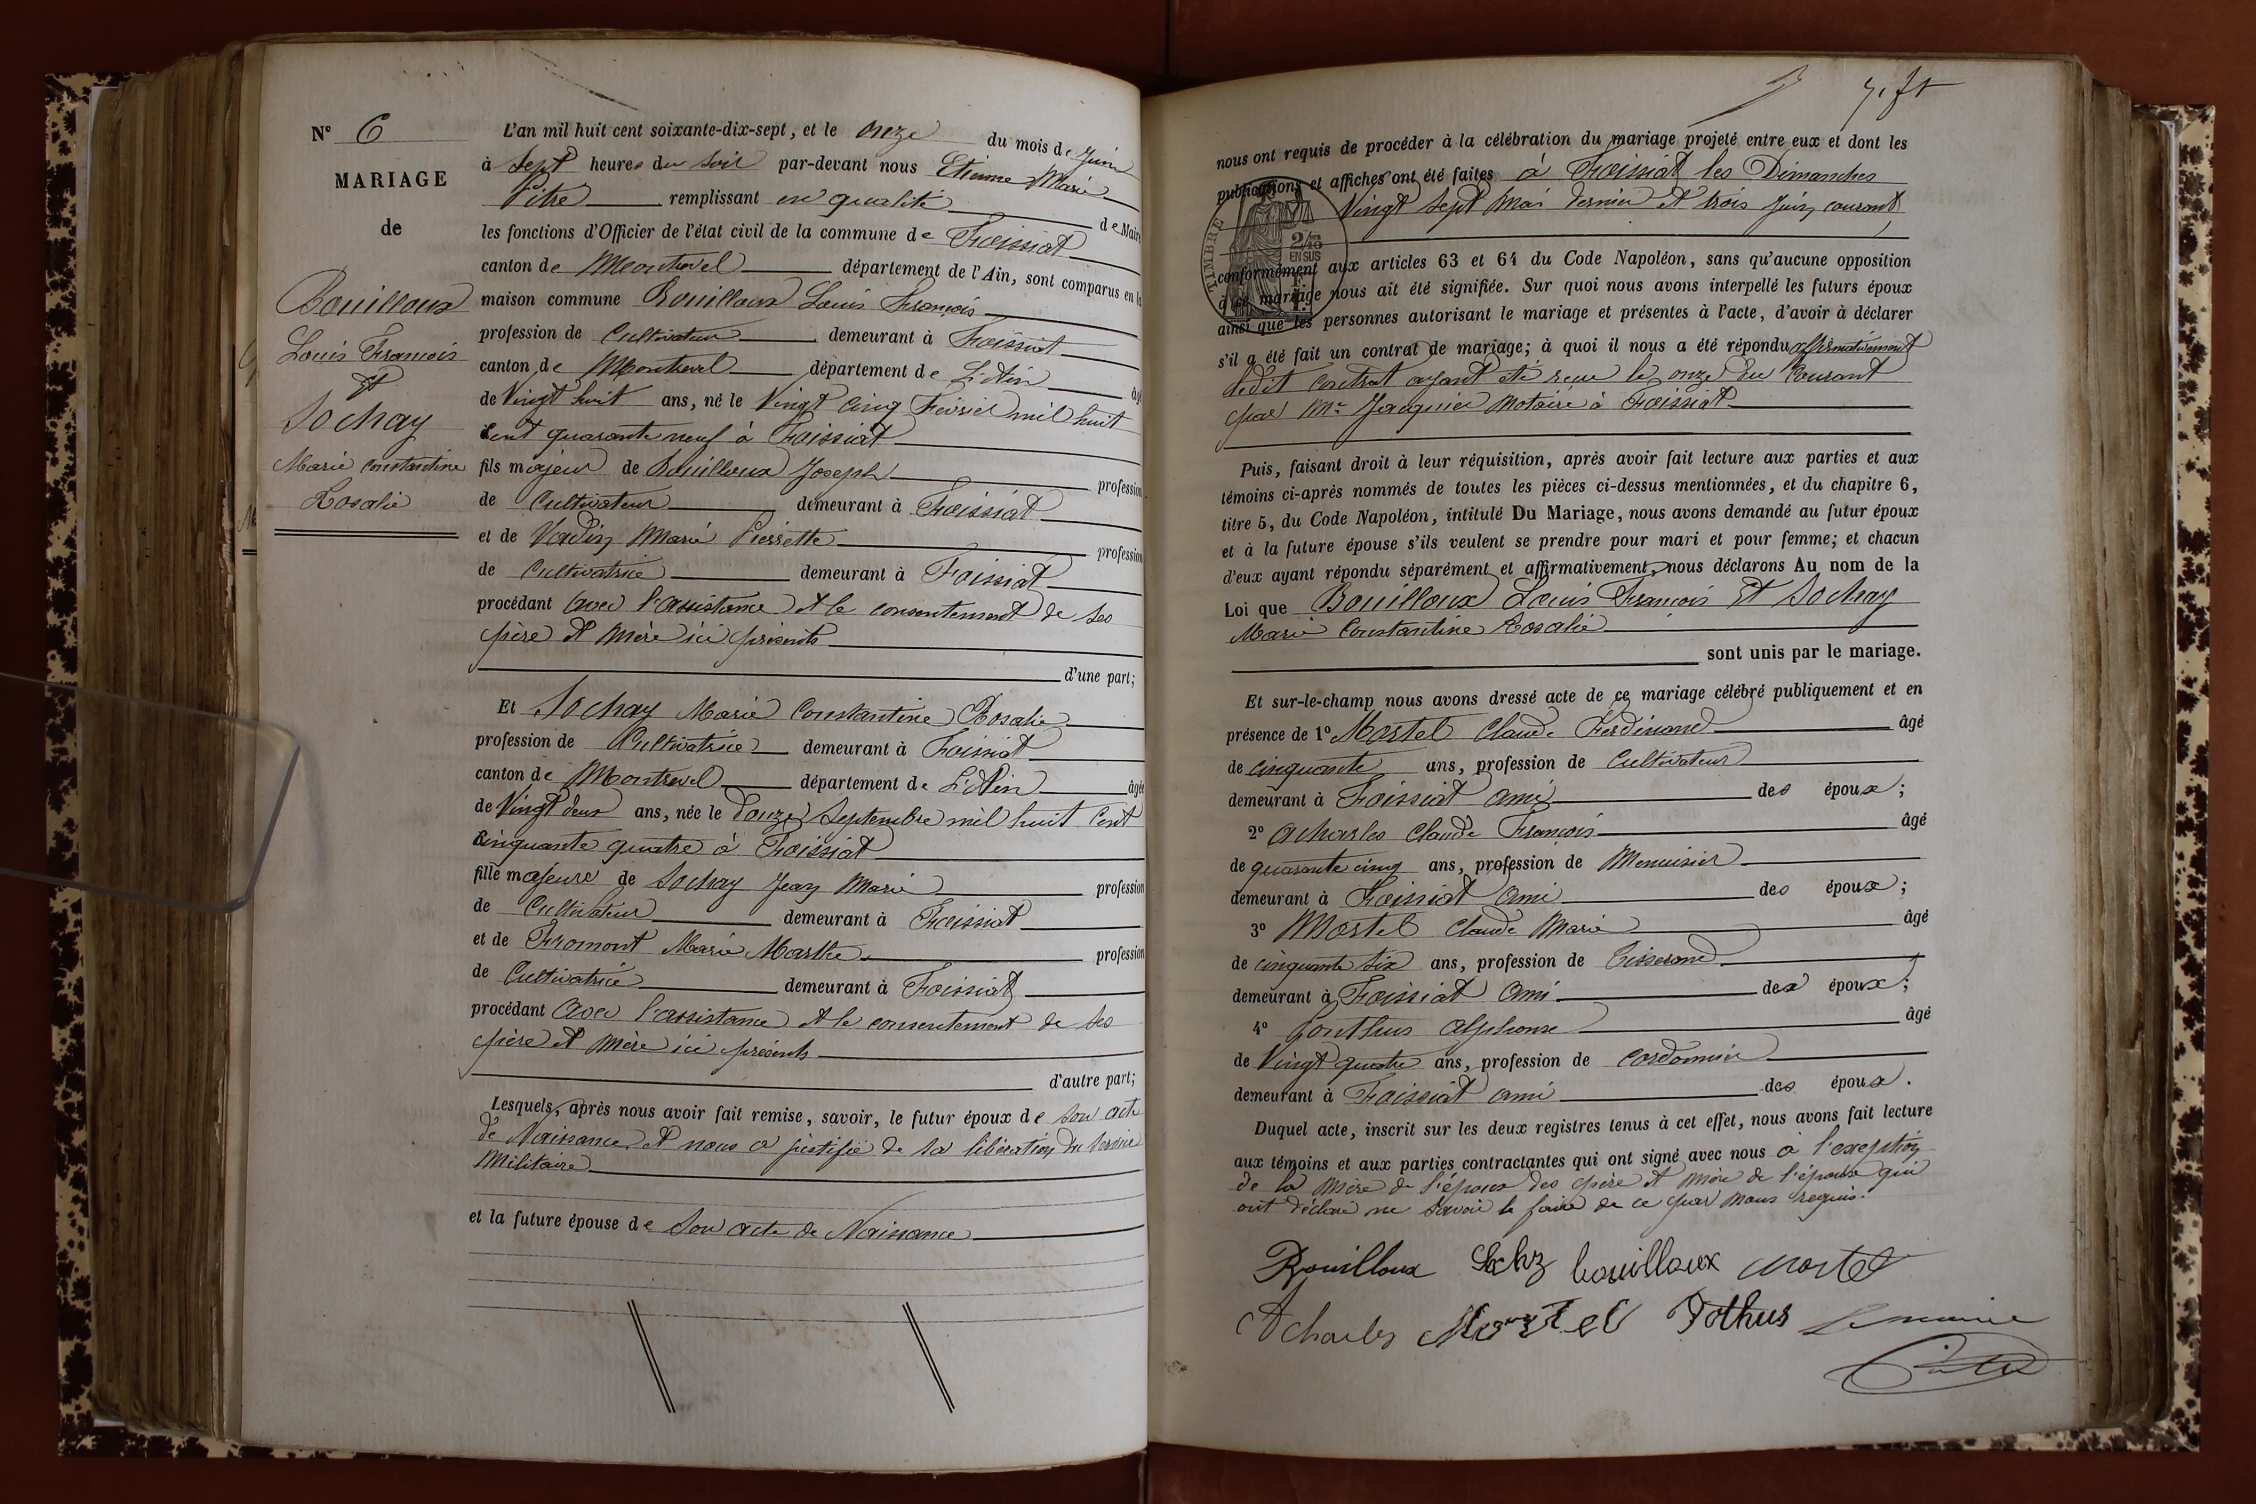 N° 6
MARIAGE
de
Bouilloux
Louis François
Et
Sochay
Marie Constantine
Rosalie
L'an mil huit cent soixante-dix-sept, et le onze du mois de Juin
à Sept heures du soir par-devant nous Etienne Marie
Pitre remplissant en qualité de Maire
les fonctions d'Officier de l'état civil de la commune de Foissiat
canton de Montrevel département de l'Ain, sont comparus en la
maison commune Bouilloux Louis François
profession de Cultivateur demeurant à Foissiat
canton de Montrevel département de L'Ain âgé
de Vingt huit ans, né le Vingt cinq Février mil huit
Cent quarante neuf à Foissiat
fils majeur de Bouilloux Joseph profession
de Cultivateur demeurant à Foissiat
et de Vardin Marie Pierrette profession
de Cultivatrice demeurant à Foissiat
procédant avec l'assistance et le consentement de ses
père et mère ici présents
d'une part;
Et Sochay Marie Constantine Rosalie
profession de Cultivatrice demeurant à Foissiat
canton de Montrevel département de L'Ain âgée
de Vingt deux ans, née le Douze Septembre mil huit Cent
Cinquante quatre à Foissiat
fille majeure de Sochay Jean Marie profession
de Cultivateur demeurant à Foissiat
et de Fromont Marie Marthe profession
de Cultivatrice demeurant à Foissiat
procédant avec l'assistance et le consentement de ses
père et mère ici présents
d'autre part;
Lesquels, après nous avoir fait remise, savoir, le futur époux de son acte
de Naissance et nous a justifié de sa libération du service
Militaire
et la future épouse de Son acte de Naissance
nous ont requis de procéder à la célébration du mariage projeté entre eux et dont les
publications et affiches ont été faites à Foissiat les Dimanches
Vingt Sept Mai dernier et trois Juin courant
TIMBRE
2/10
EN SUS
conformément aux articles 63 et 64 du Code Napoléon, sans qu'aucune opposition
à ce mariage nous ait été signifiée. Sur quoi nous avons interpellé les futurs époux
ainsi que les personnes autorisant le mariage et présentes à l'acte, d'avoir à déclarer
s'il a été fait un contrat de mariage; à quoi il nous a été répondu affirmativement
ledit contrat ayant été reçu le onze du Courant
par Me Jacquier Notaire à Foissiat
Puis, faisant droit à leur réquisition, après avoir fait lecture aux parties et aux
témoins ci-après nommés de toutes les pièces ci-dessus mentionnées, et du chapitre 6,
titre 5, du Code Napoléon, intitulé Du Mariage, nous avons demandé au futur époux
et à la future épouse s'ils veulent se prendre pour mari et pour femme; et chacun
d'eux ayant répondu séparément et affirmativement, nous déclarons Au nom de la
Loi que Bouilloux Louis François Et Sochay
Marie Constantine Rosalie
sont unis par le mariage.
Et sur-le-champ nous avons dressé acte de ce mariage célébré publiquement et en
présence de 1° Mortel Claude Ferdinand âgé
de cinquante ans, profession de Cultivateur
demeurant à Foissiat ami des époux;
2° Acharles Claude François âgé
de quarante cinq ans, profession de Menuisier
demeurant à Foissiat ami des époux;
3° Mortel Claude Marie âgé
de cinquante six ans, profession de Tisserand
demeurant à Foissiat ami des époux;
4° Ponthus Alphonse âgé
de Vingt quatre ans, profession de cordonnier
demeurant à Foissiat ami des époux.
Duquel acte, inscrit sur les deux registres tenus à cet effet, nous avons fait lecture
aux témoins et aux parties contractantes qui ont signé avec nous à l'exception
de la mère de l'époux des père et mère de l'épouse qui
ont déclaré ne savoir le faire de ce par nous requis.
Bouilloux bouilloux Mortel
Acharles Mortel Pothus Le maire
Pitre